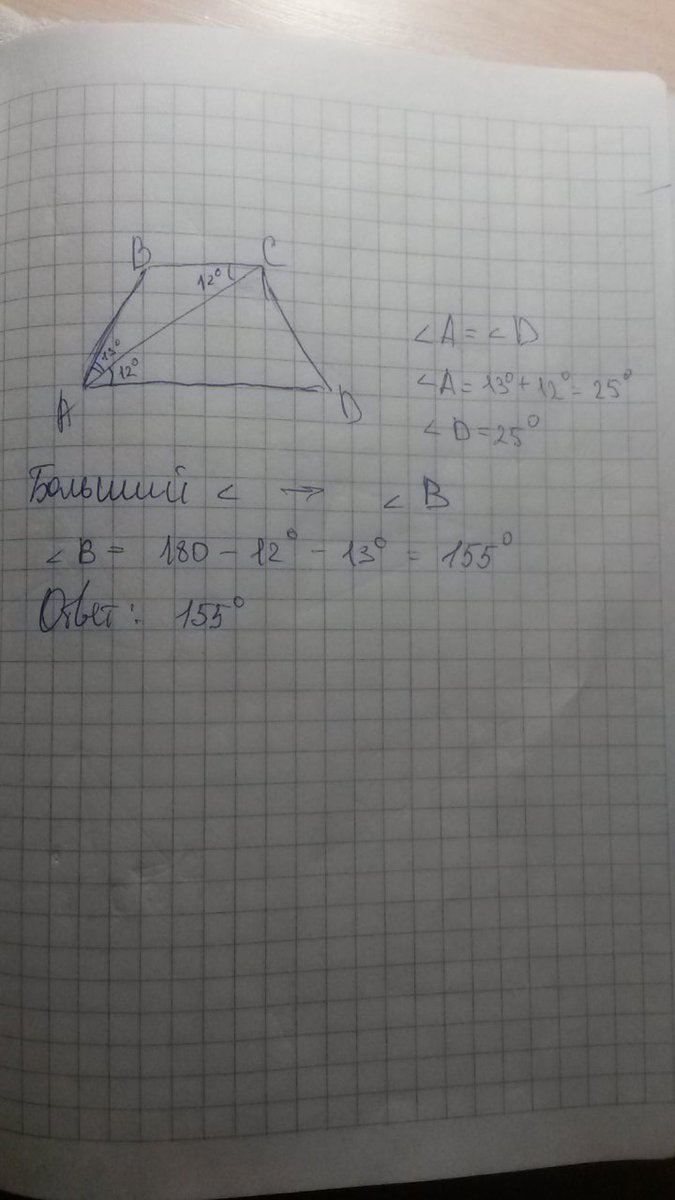 B C
12°
13°
12°
A D
∠A = ∠D
∠A = 13° + 12° = 25°
∠D = 25°
Больший ∠ → ∠B
∠B = 180 - 12° - 13° = 155°
Ответ: 155°